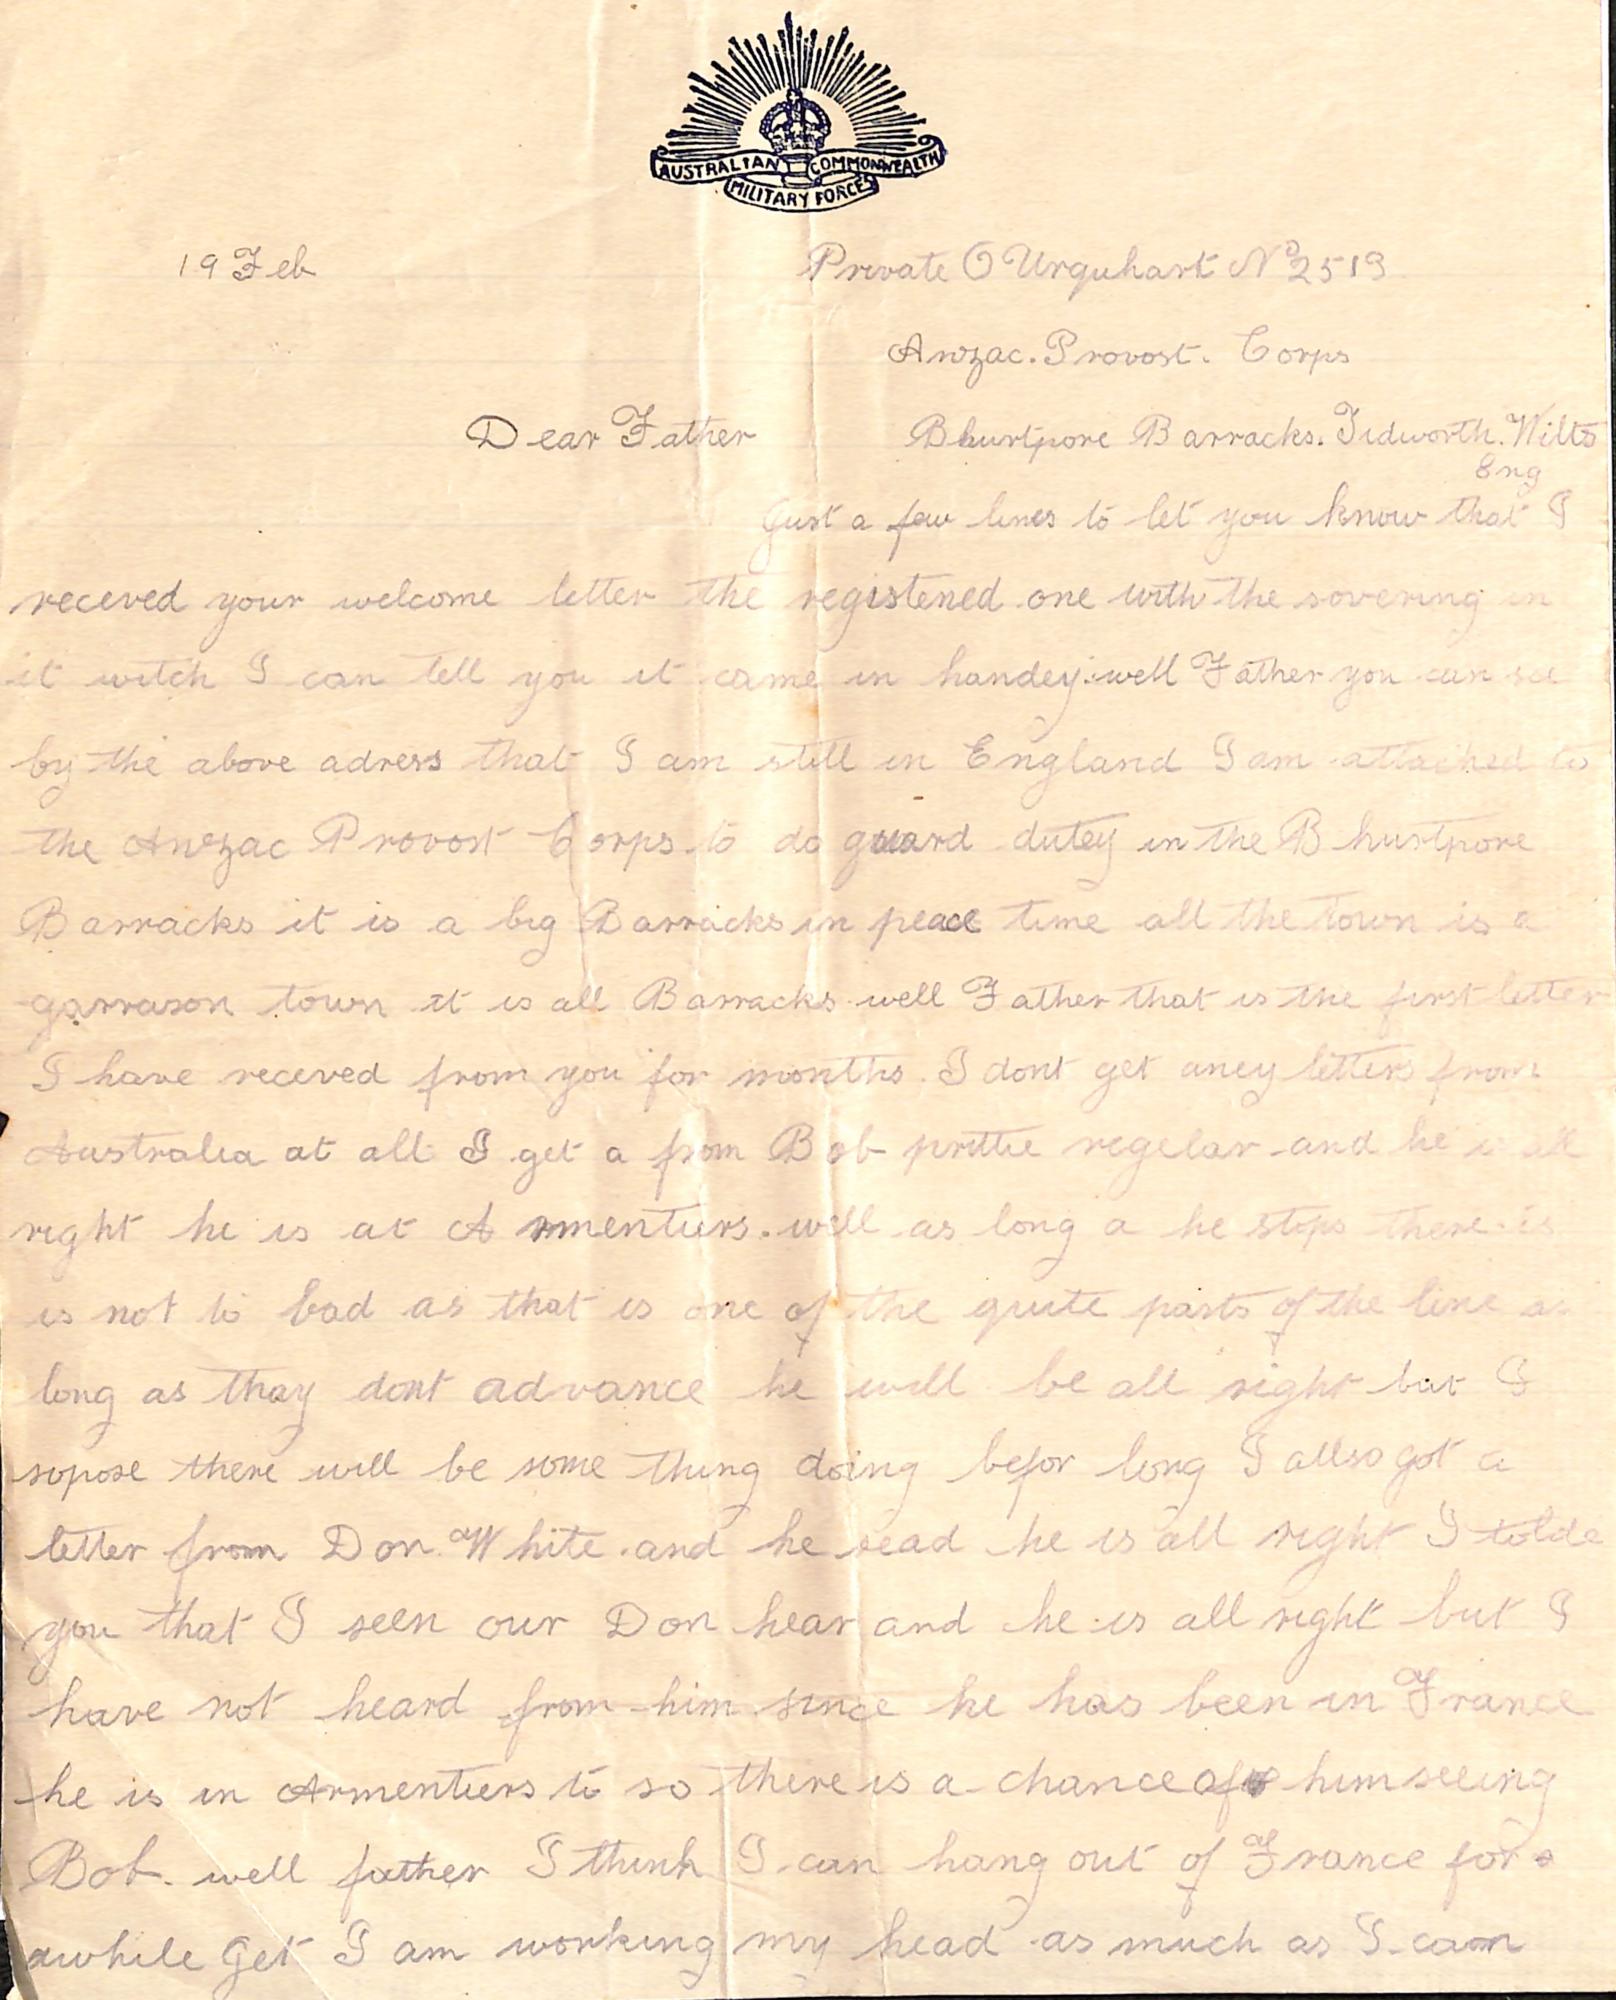 AUSTRALIAN COMMONWEALTH
MILITARY FORCES
19 Feb
Private O Urquhart No 2519
Anzac. Provost. Corps
Dear Father
Bhurtpore Barracks. Tidworth. Wilts
Eng
Just a few lines to let you know that I
receved your welcome letter the registened one with the sovering in
it witch I can tell you it came in handey. well Father you can see
by the above adress that I am still in England I am attached to
the Anzac Provost Corps. to do guard dutey in the Bhurtpore
Barracks it is a big Barracks in peace time all the town is a
garrason town it is all Barracks well Father that is the first letter
I have receved from you for months. I dont get aney letters from
Australia at all I get a from Bob prittie regelar and he is all
right he is at Armentiers. well as long a he stops there is
is not to bad as that is one of the quite parts of the line as
long as thay dont advance he will be all right but I
sopose there will be some thing doing befor long I allso got a
letter from Don. White. and he sead he is all right I tolde
you that I seen our Don hear and he is all right but I
have not heard from him since he has been in France
he is in Armentiers to so there is a chance of him seeing
Bob. well father I think I can hang out of France for a
awhile yet I am working my head as much as I can